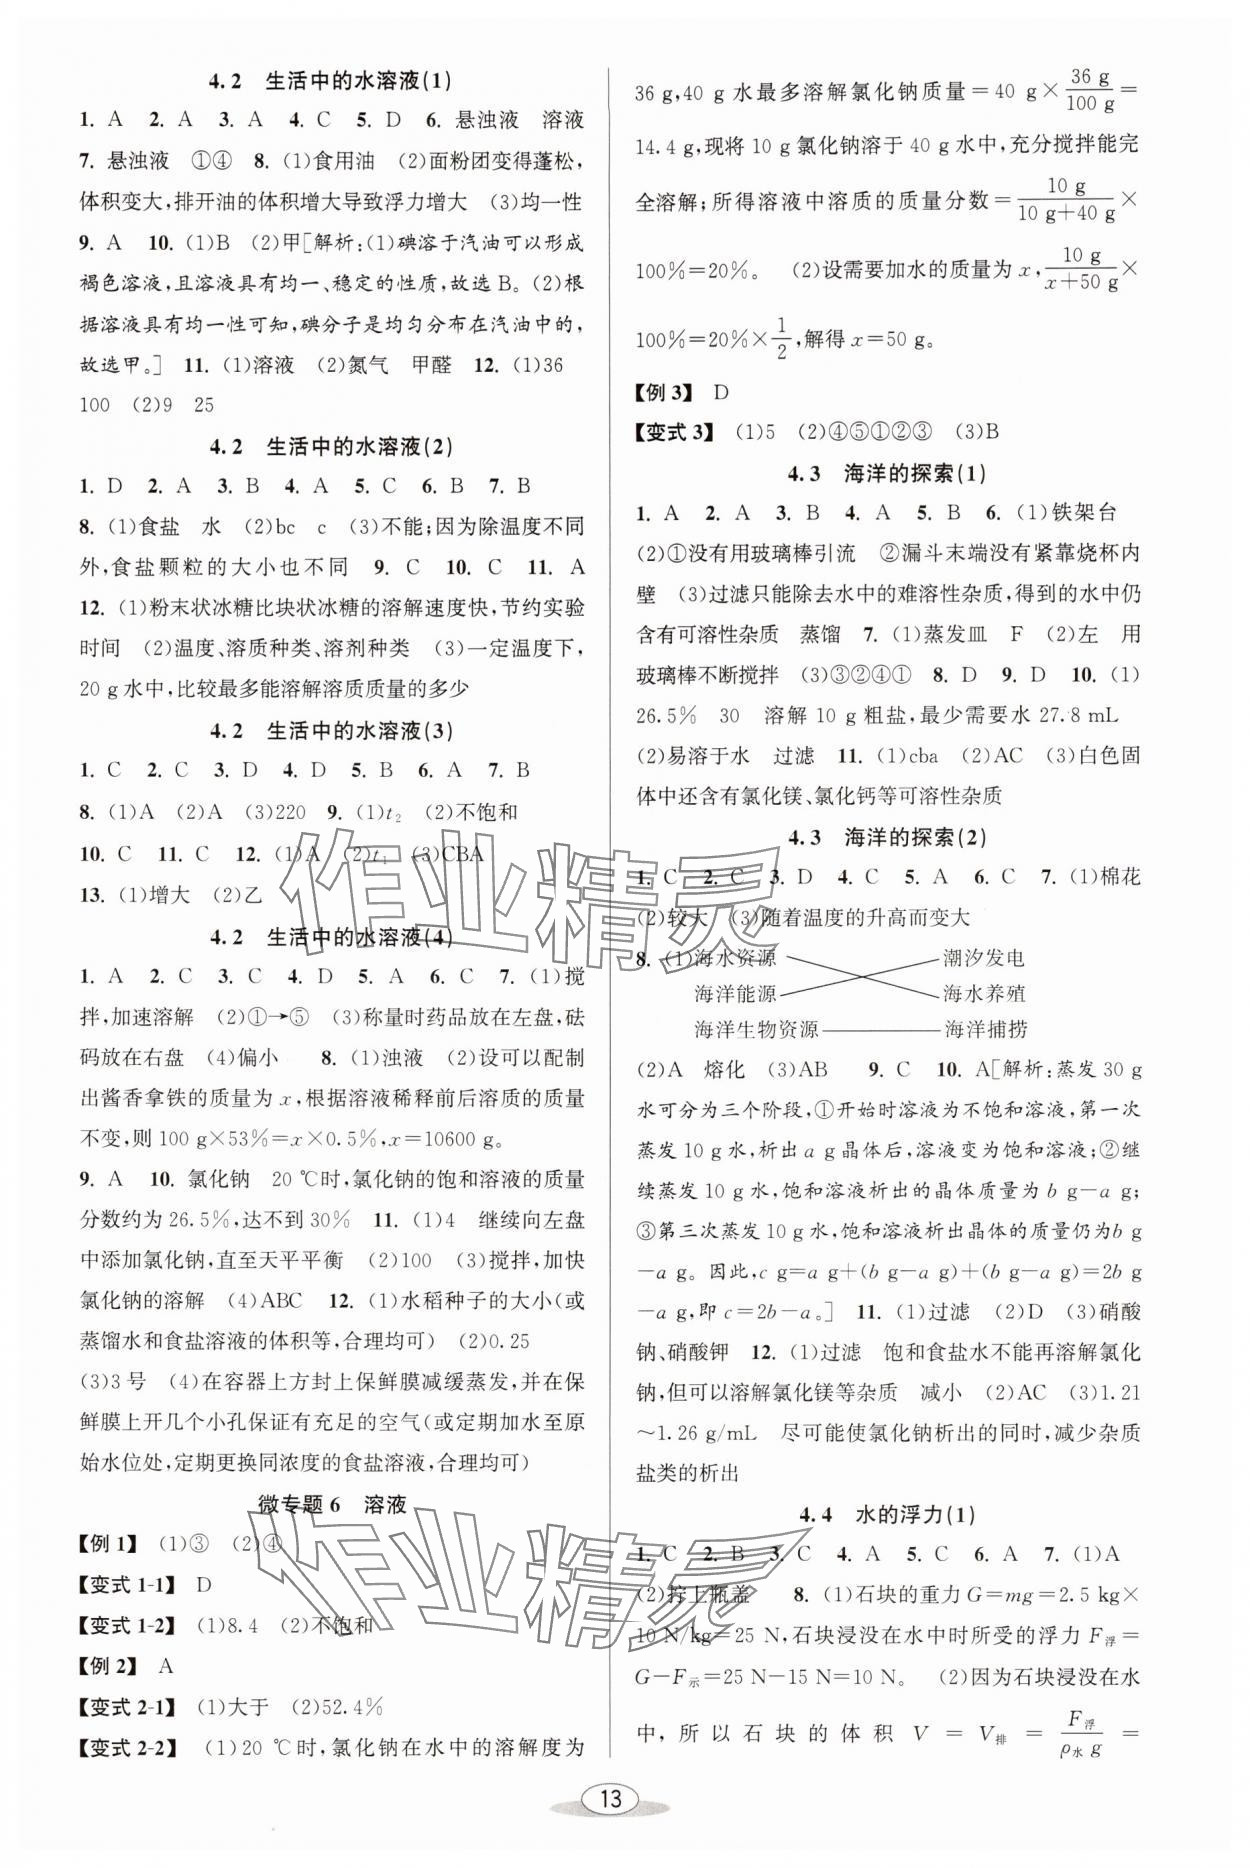 4.2 生活中的水溶液(1)
1. A 2. A 3. A 4. C 5. D 6. 悬浊液 溶液
7. 悬浊液 ①④ 8. (1)食用油 (2)面粉团变得蓬松,
体积变大,排开油的体积增大导致浮力增大 (3)均一性
9. A 10. (1)B (2)甲[解析:(1)碘溶于汽油可以形成
褐色溶液,且溶液具有均一、稳定的性质,故选B。(2)根
据溶液具有均一性可知,碘分子是均匀分布在汽油中的,
故选甲。] 11. (1)溶液 (2)氮气 甲醛 12. (1)36
100 (2)9 25
4.2 生活中的水溶液(2)
1. D 2. A 3. B 4. A 5. C 6. B 7. B
8. (1)食盐 水 (2)bc c (3)不能;因为除温度不同
外,食盐颗粒的大小也不同 9. C 10. C 11. A
12. (1)粉末状冰糖比块状冰糖的溶解速度快,节约实验
时间 (2)温度、溶质种类、溶剂种类 (3)一定温度下,
20 g水中,比较最多能溶解溶质质量的多少
4.2 生活中的水溶液(3)
1. C 2. C 3. D 4. D 5. B 6. A 7. B
8. (1)A (2)A (3)220 9. (1)t₂ (2)不饱和
10. C 11. C 12. (1)A (2)t₁ (3)CBA
13. (1)增大 (2)乙
4.2 生活中的水溶液(4)
1. A 2. C 3. C 4. D 5. A 6. C 7. (1)搅
拌,加速溶解 (2)①→⑤ (3)称量时药品放在左盘,砝
码放在右盘 (4)偏小 8. (1)浊液 (2)设可以配制
出酱香拿铁的质量为x,根据溶液稀释前后溶质的质量
不变,则100 g×53%=x×0.5%,x=10600 g。
9. A 10. 氯化钠 20 ℃时,氯化钠的饱和溶液的质量
分数约为26.5%,达不到30% 11. (1)4 继续向左盘
中添加氯化钠,直至天平平衡 (2)100 (3)搅拌,加快
氯化钠的溶解 (4)ABC 12. (1)水稻种子的大小(或
蒸馏水和食盐溶液的体积等,合理均可) (2)0.25
(3)3号 (4)在容器上方封上保鲜膜减缓蒸发,并在保
鲜膜上开几个小孔保证有充足的空气(或定期加水至原
始水位处,定期更换同浓度的食盐溶液,合理均可)
微专题6 溶液
【例1】 (1)③ (2)④
【变式1-1】 D
【变式1-2】 (1)8.4 (2)不饱和
【例2】 A
【变式2-1】 (1)大于 (2)52.4%
【变式2-2】 (1)20 ℃时,氯化钠在水中的溶解度为
36 g,40 g水最多溶解氯化钠质量=40 g×36 g/100 g=
14.4 g,现将10 g氯化钠溶于40 g水中,充分搅拌能完
全溶解;所得溶液中溶质的质量分数=10 g/(10 g+40 g)×
100%=20%。 (2)设需要加水的质量为x,10 g/(x+50 g)×
100%=20%×1/2,解得x=50 g。
【例3】 D
【变式3】 (1)5 (2)④⑤①②③ (3)B
4.3 海洋的探索(1)
1. A 2. A 3. B 4. A 5. B 6. (1)铁架台
(2)①没有用玻璃棒引流 ②漏斗末端没有紧靠烧杯内
壁 (3)过滤只能除去水中的难溶性杂质,得到的水中仍
含有可溶性杂质 蒸馏 7. (1)蒸发皿 F (2)左 用
玻璃棒不断搅拌 (3)③②④① 8. D 9. D 10. (1)
26.5% 30 溶解10 g粗盐,最少需要水27.8 mL
(2)易溶于水 过滤 11. (1)cba (2)AC (3)白色固
体中还含有氯化镁、氯化钙等可溶性杂质
4.3 海洋的探索(2)
1. C 2. C 3. D 4. C 5. A 6. C 7. (1)棉花
(2)较大 (3)随着温度的升高而变大
8. (1)海水资源 潮汐发电
海洋能源 海水养殖
海洋生物资源 海洋捕捞
(2)A 熔化 (3)AB 9. C 10. A[解析:蒸发30 g
水可分为三个阶段,①开始时溶液为不饱和溶液,第一次
蒸发10 g水,析出a g晶体后,溶液变为饱和溶液;②继
续蒸发10 g水,饱和溶液析出的晶体质量为b g-a g;
③第三次蒸发10 g水,饱和溶液析出晶体的质量仍为b g
-a g。因此,c g=a g+(b g-a g)+(b g-a g)=2b g
-a g,即c=2b-a。] 11. (1)过滤 (2)D (3)硝酸
钠、硝酸钾 12. (1)过滤 饱和食盐水不能再溶解氯化
钠,但可以溶解氯化镁等杂质 减小 (2)AC (3)1.21
~1.26 g/mL 尽可能使氯化钠析出的同时,减少杂质
盐类的析出
4.4 水的浮力(1)
1. C 2. B 3. C 4. A 5. C 6. A 7. (1)A
(2)拧上瓶盖 8. (1)石块的重力G=mg=2.5 kg×
10 N/kg=25 N,石块浸没在水中时所受的浮力F浮=
G-F示=25 N-15 N=10 N。 (2)因为石块浸没在水
中,所以石块的体积V=V排=F浮/ρ水g=
13
作业精灵
作业精灵